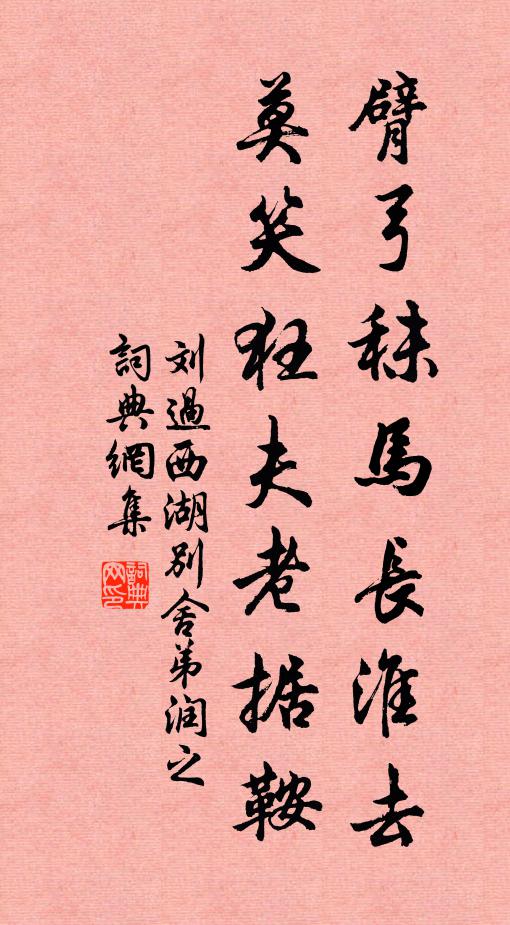 臂弓秣馬長淮去
莫笑狂夫老据鞍
刘過西湖別舍弟润之
詞典網集
詞典网印